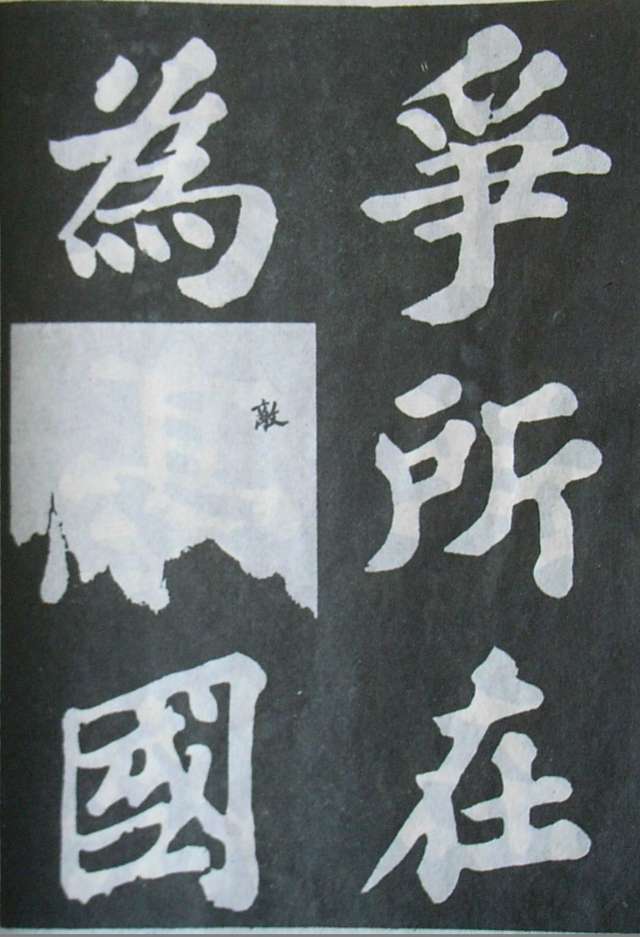 爭所在
為敵國